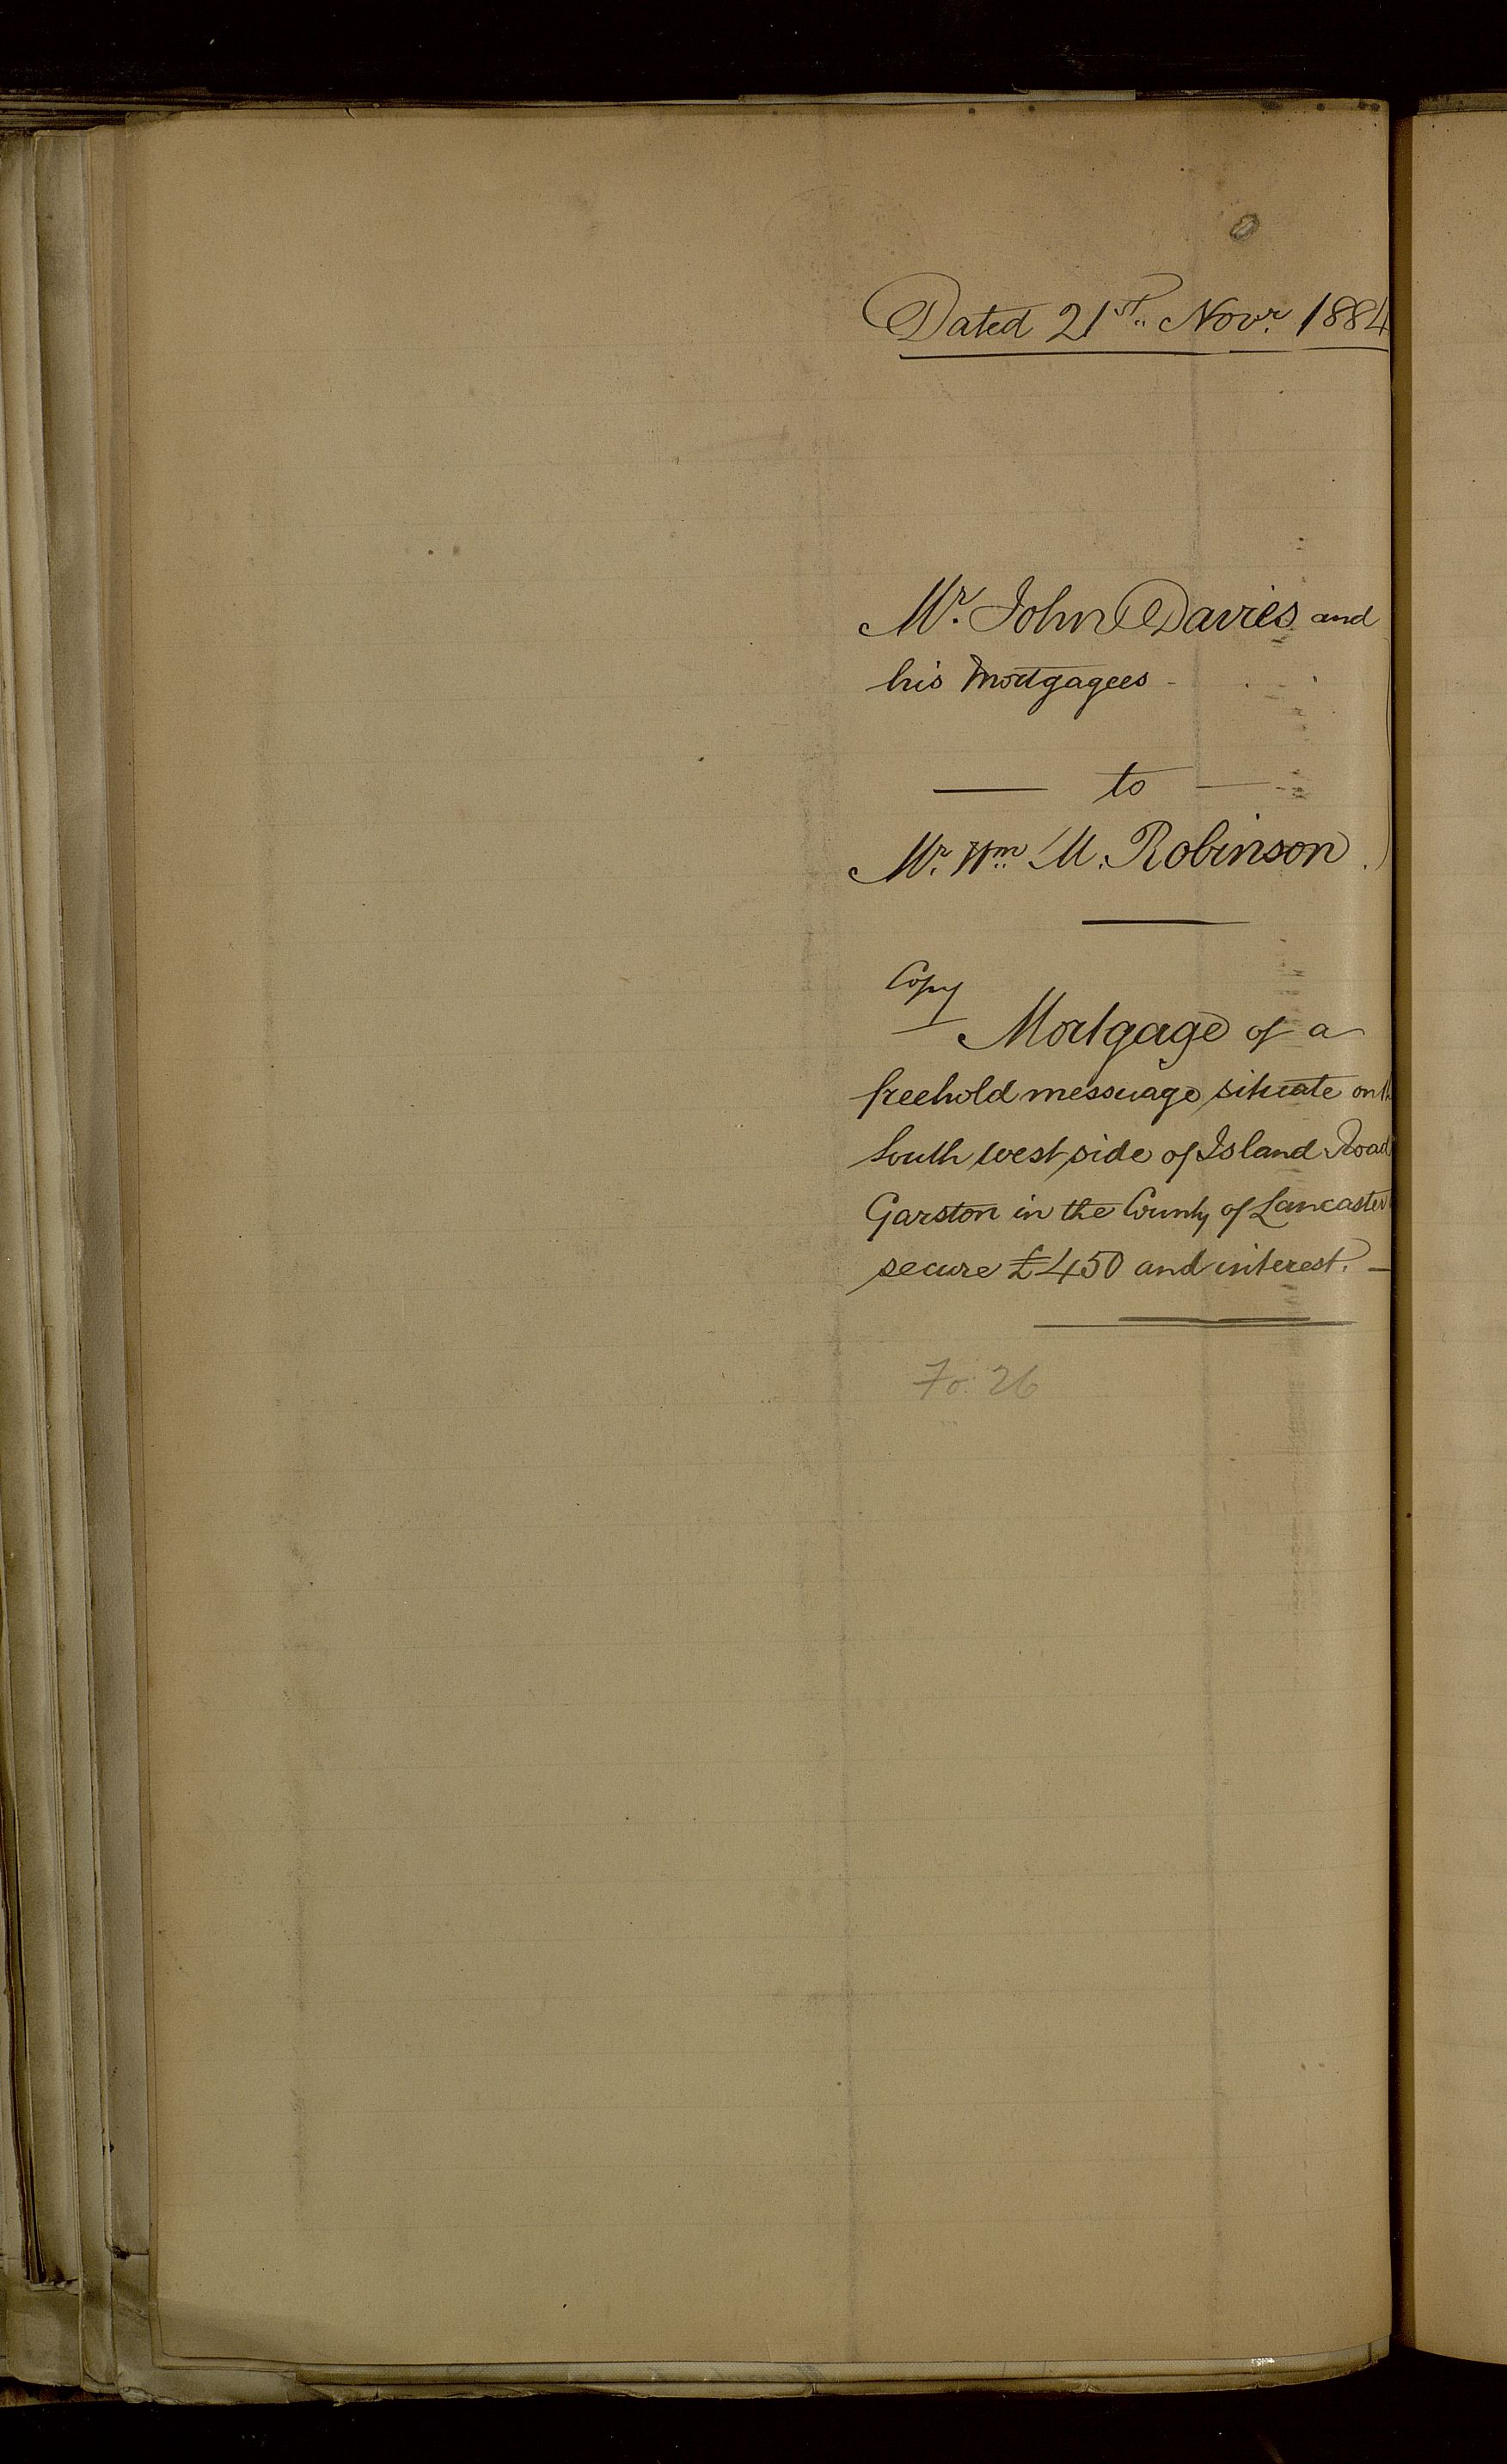 Dated 21st Novr. 1884
Mr. John Davies and
his Mortgagees -
— to —
Mr. Wm. M. Robinson
Copy
Mortgage of a
freehold messuage situate on
South west side of Island Road
Garston in the County of Lancaster
secure £450 and interest. —
Fo: 26